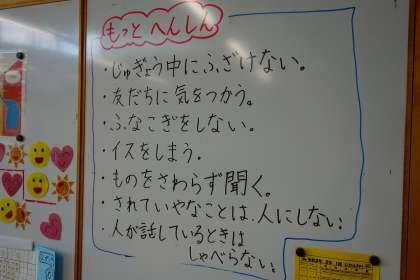 もっと へんしん
・じゅぎょう中にふざけない。
・友だちに気をつかう。
・ふなこぎをしない。
・イスをしまう。
・ものをさわらず聞く。
・されていやなことは、人にしない。
・人が話しているときは
しゃべらない。